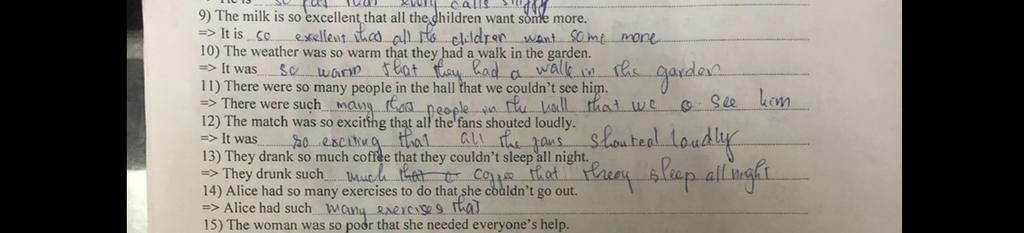 so that every calls
9) The milk is so excellent that all the children want some more.
=> It is so exellent that all the children want some more
10) The weather was so warm that they had a walk in the garden.
=> It was so warm that they had a walk in the garden
11) There were so many people in the hall that we couldn't see him.
=> There were such many people in the hall that we see him
12) The match was so exciting that all the fans shouted loudly.
=> It was so exciting that all the fans shouted loudly
13) They drank so much coffee that they couldn't sleep all night.
=> They drunk such much coffee that theey sleep all night
14) Alice had so many exercises to do that she couldn't go out.
=> Alice had such many exercises that
15) The woman was so poor that she needed everyone's help.